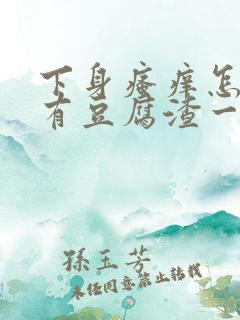 下身瘙痒怎
有豆腐渣一
孫玉芳
未经同意禁止转载